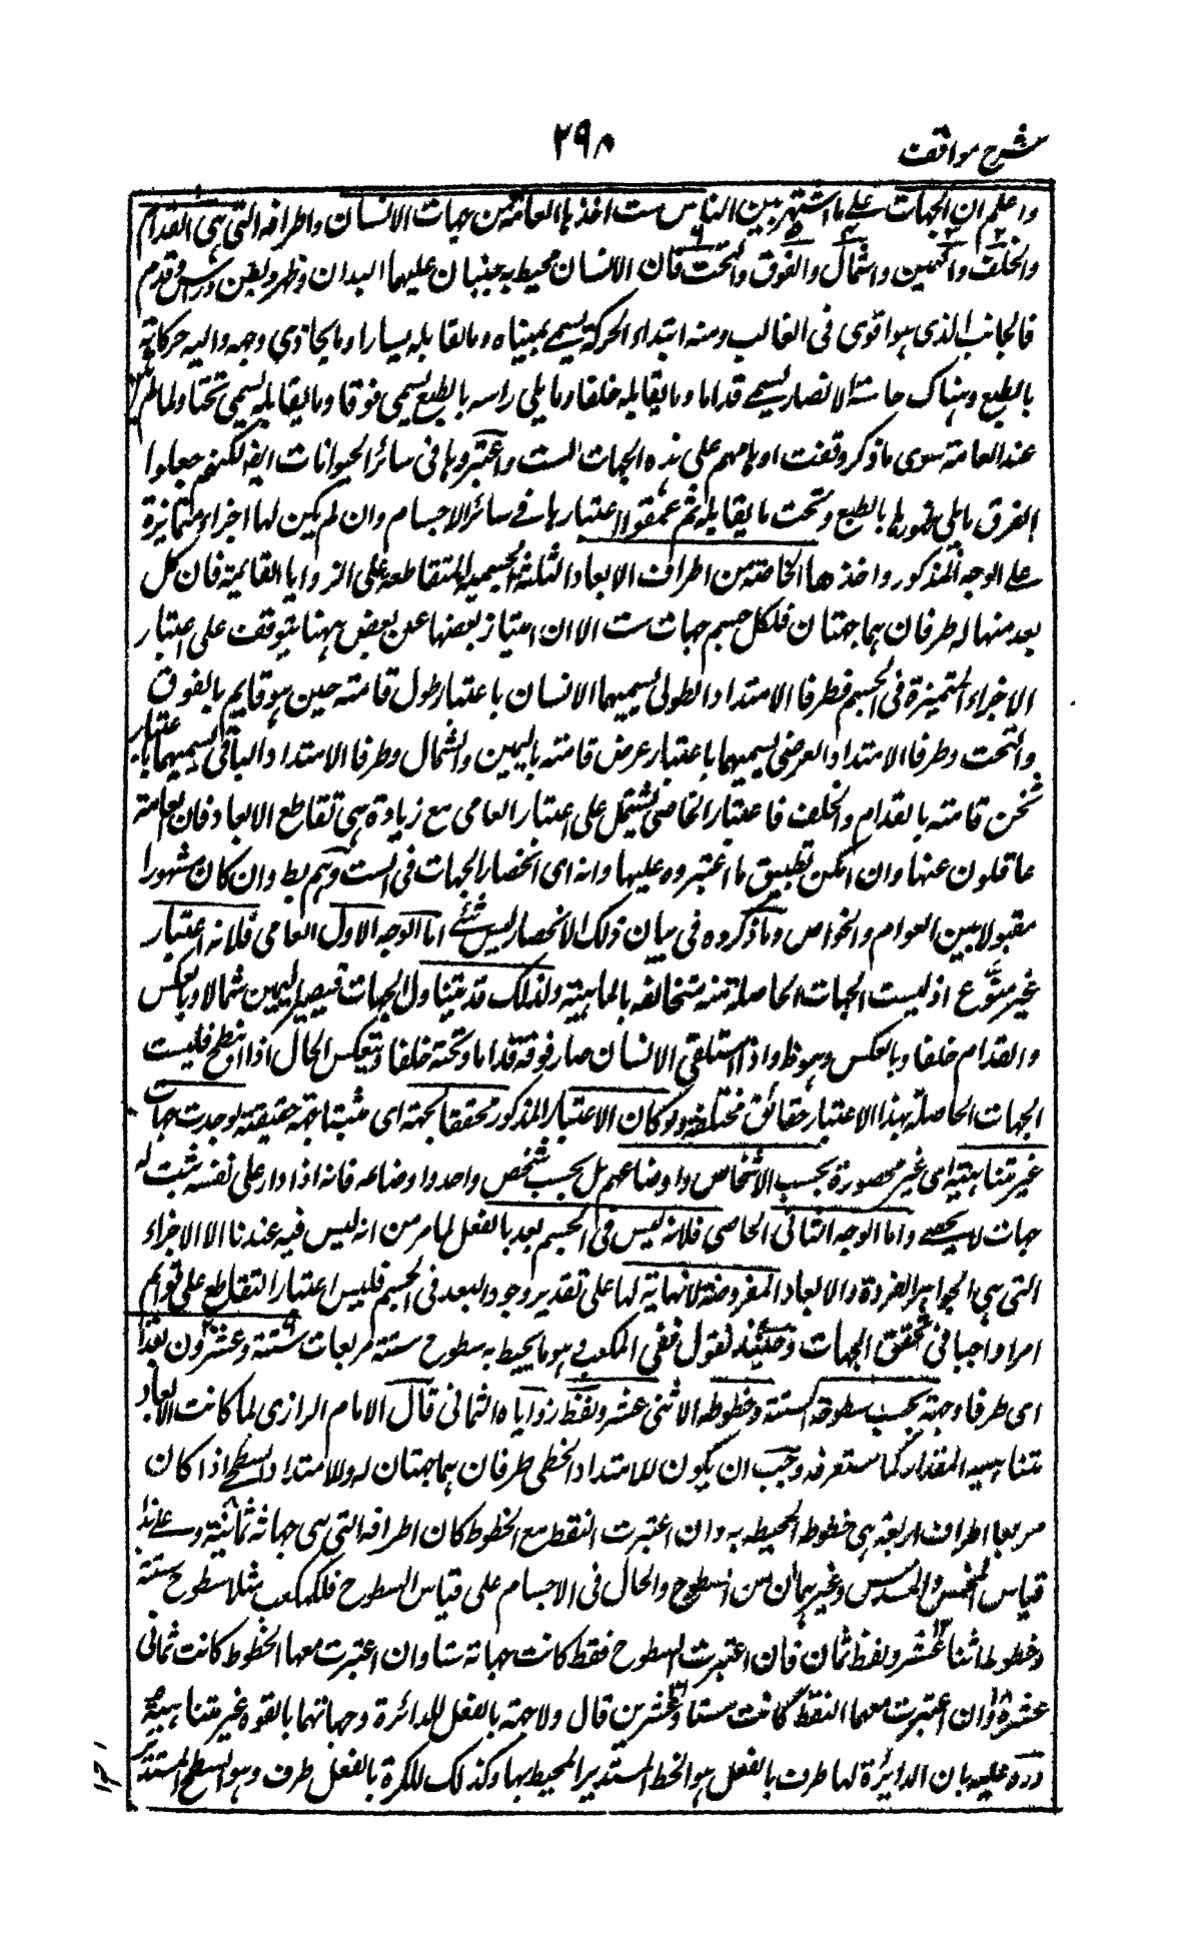 شرح مواقف
٢٩٨
واعلم ان الجهات على ما اشتهر بين الناس ست اخذها العامة من جهات الانسان واطرافه التى هى القدام
والخلف واليمين والشمال والفوق والتحت فان الانسان محيط به جنبان عليهما اليدان وظهر وبطن وراس وقدم
فالجانب الذى هو اقوى فى الغالب ومنه ابتداء الحركة يسمى يمينا وما يقابله يسارا وما يحاذى وجهه واليه حركاته
بالطبع وهناك حاسة الابصار يسمى قداما وما يقابله خلفا وما يلى راسه بالطبع يسمى فوقا وما يقابله يسمى تحتا ولما لم يكن
عند العامة سوى ما ذكر وقفت اوهامهم على هذه الجهات الست واعتبروها فى سائر الحيوانات ايضا لكنهم جعلوا
الفوق ما يلى ظهورها بالطبع وتحت ما يقابله ثم عمموا اعتبارها فى سائر الاجسام وان لم يكن لها اجزاء متمايزة
على الوجه المذكور واخذها الخاصة من اطراف الابعاد الثلثة الجسمية المتقاطعة على الزوايا القائمة فان كل
بعد منها له طرفان هما جهتان فلكل جسم جهات ست الا ان امتياز بعضها عن بعض ههنا يتوقف على اعتبار
الاجزاء المتميزة فى الجسم فطرفا الامتداد الطولى يسميهما الانسان باعتبار طول قامته حين هو قايم بالفوق
والتحت وطرفا الامتداد العرضى يسميهما باعتبار عرض قامته باليمين والشمال وطرفا الامتداد الباقى يسميهما باعتبار
ثخن قامته بالقدام والخلف فاعتبار الخاصى يشتمل على اعتبار العامى مع زيادة هى تقاطع الابعاد فان العامة
غافلون عنها وان امكن تطبيق ما اعتبروه عليها وانه اى انحصار الجهات فى الست وهم بط وان كان مشهورا
مقبولا بين العوام والخواص وما ذكروه فى بيان ذلك الانحصار ليس بشئ اما الوجه الاول العامى فلانه اعتبار
غير متنوع اذ ليست الجهات الحاصلة منه متخالفة بالماهية ولذلك قد يتبادل الجهات فيصير اليمين شمالا وبالعكس
والقدام خلفا وبالعكس وهو ظ واذا استلقى الانسان صار فوقه قداما وتحته خلفا وينعكس الحال اذا انبطح فليست
الجهات الحاصلة بهذا الاعتبار حقائق مختلفة ولو كان الاعتبار المذكور محققا لجهة اى مثبتا جهة حقيقية لوجدت جهات
غير متناهية اى غير محصورة بحسب الاشخاص واوضاعهم بل بحسب شخص واحد واوضاعه فانه اذا دار على نفسه يثبت له
جهات لا يحصى واما الوجه الثانى الخاصى فلانه ليس فى الجسم بعد بالفعل لما مر من انه ليس فيه عندنا الا الاجزاء
التى هى الجواهر الفردة والابعاد المفروضة لانهاية لها على تقدير وجود البعد فى الجسم فليس اعتبار التقاطع على قوائم
امرا واجبا فى تحقق الجهات وحينئذ نقول ففى المكعب هو ما يحيط به سطوح ستة مربعات ستة وعشرون بعدا
اى طرفا وجهة بحسب سطوحه الستة وخطوطه الاثنى عشر ونقط زواياه الثمانى قال الامام الرازى لما كانت الابعاد
متناهية المقدار كما ستعرفه وجب ان يكون للامتداد الخطى طرفان هما جهتان له وللامتداد السطحى اذا كان
مربعا اطراف اربعة هى خطوط المحيطة به وان اعتبرت النقط مع الخطوط كان اطرافه التى هى جهاته ثمانية وعلى هذا
قياس المخمس والمسدس وغيرهما من السطوح والحال فى الاجسام على قياس السطوح فللمكعب مثلا سطوح ستة
وخطوط اثنا عشر ونقط ثمان فان اعتبرت السطوح فقط كانت جهاته ستا وان اعتبرت معها الخطوط كانت ثمانى
عشرة وان اعتبرت معها النقط كانت ستا وعشرين قال ولا جهة بالفعل للدائرة وجهاتها بالقوة غير متناهية
ورد عليه بان الدائرة لها طرف بالفعل هو الخط المستدير المحيط بها وكذلك للكرة بالفعل طرف وهو السطح المستدير